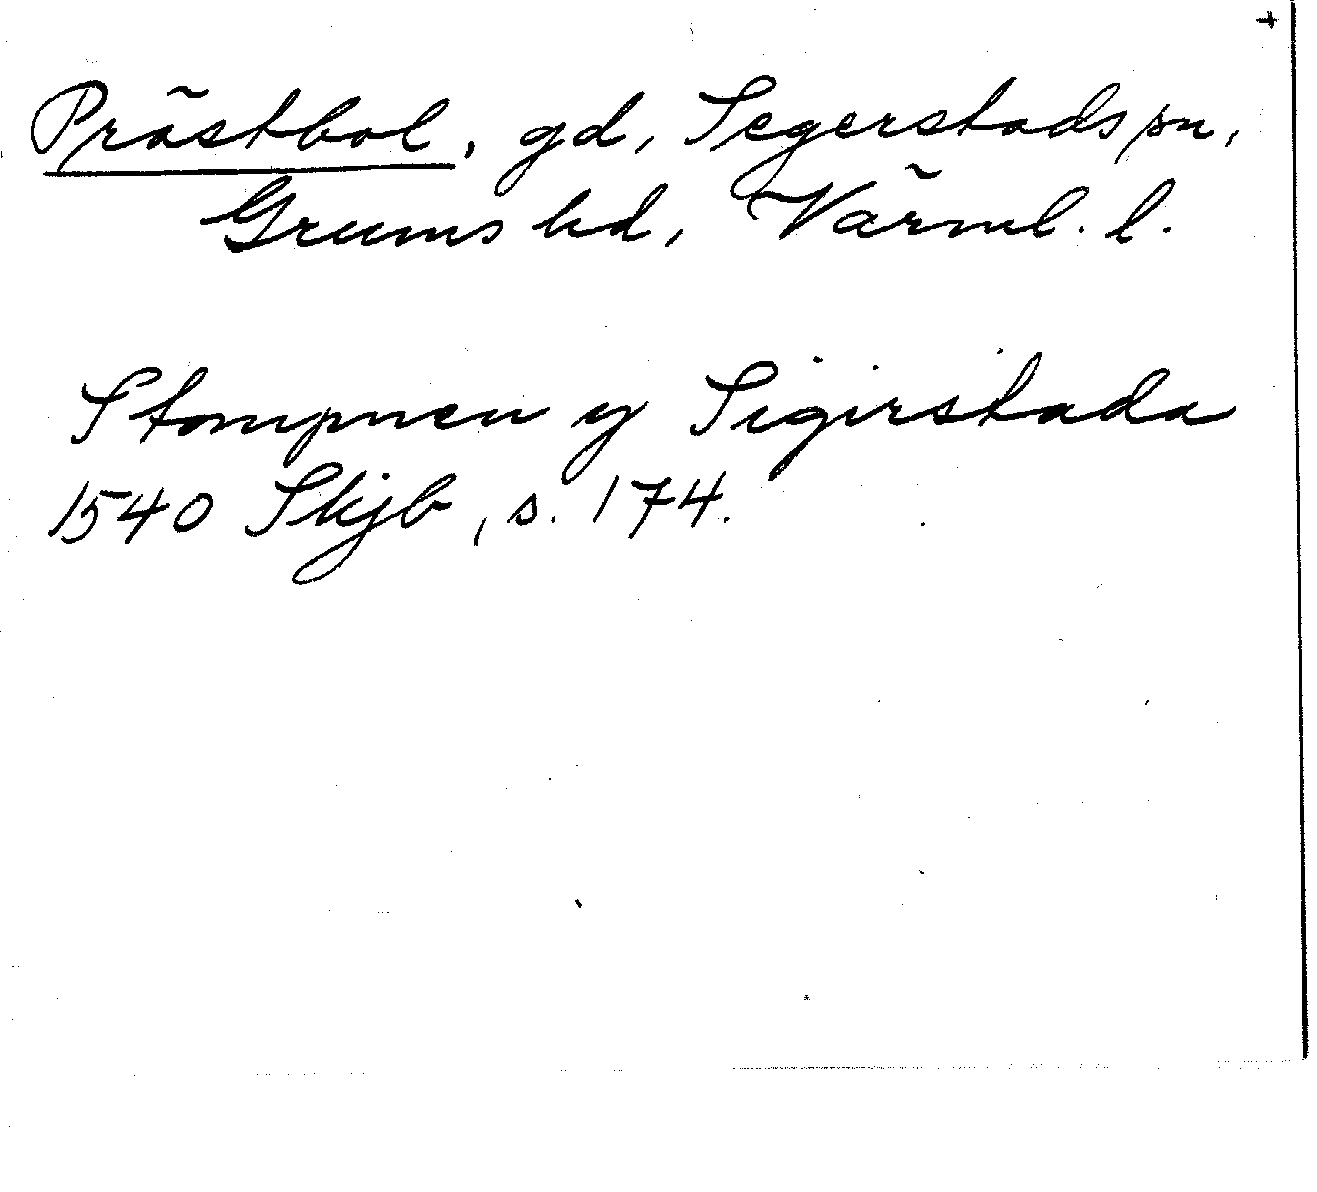 +
Prästbol, gd, Segerstads sn,
Grums hd, Värml. l.
Stompnen y Sigirstada
1540 Skjb, s. 174.